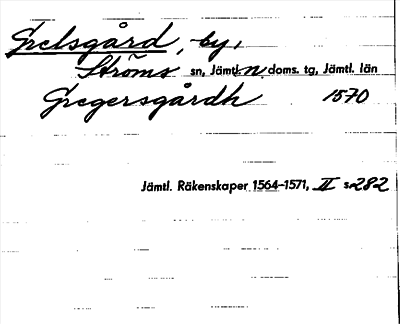 Grelsgård, by,
Ströms sn, Jämtl. n. doms. tg, Jämtl. län
Gregersgårdh 1570
Jämtl. Räkenskaper 1564-1571, II s. 282